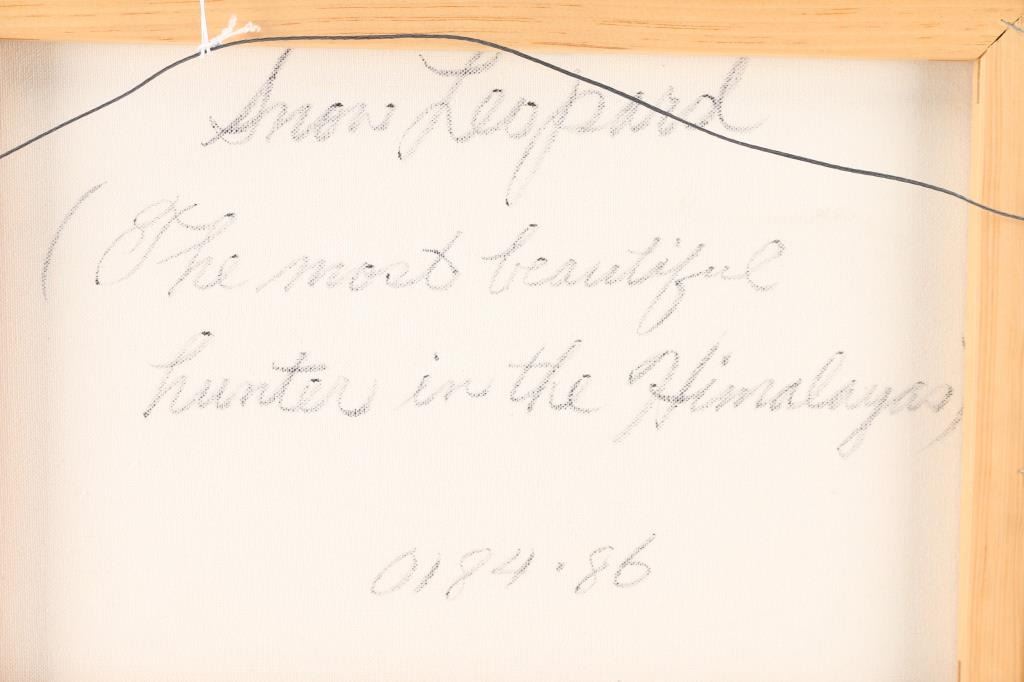 Snow Leopard
(The most beautiful
hunter in the Himalayas)
0184.86